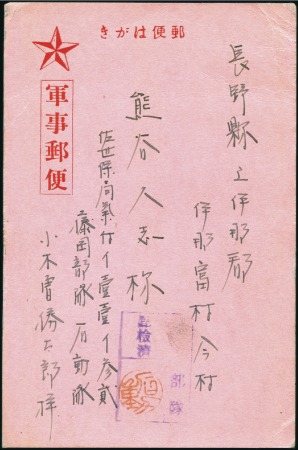 郵便はがき
軍事郵便
長野縣上伊那郡
伊那富村今村
熊谷人志様
佐世保局氣付イ壹壹イ参貳
藤岡部隊石動隊
小木曽勝太郎様
検済
部隊
石動